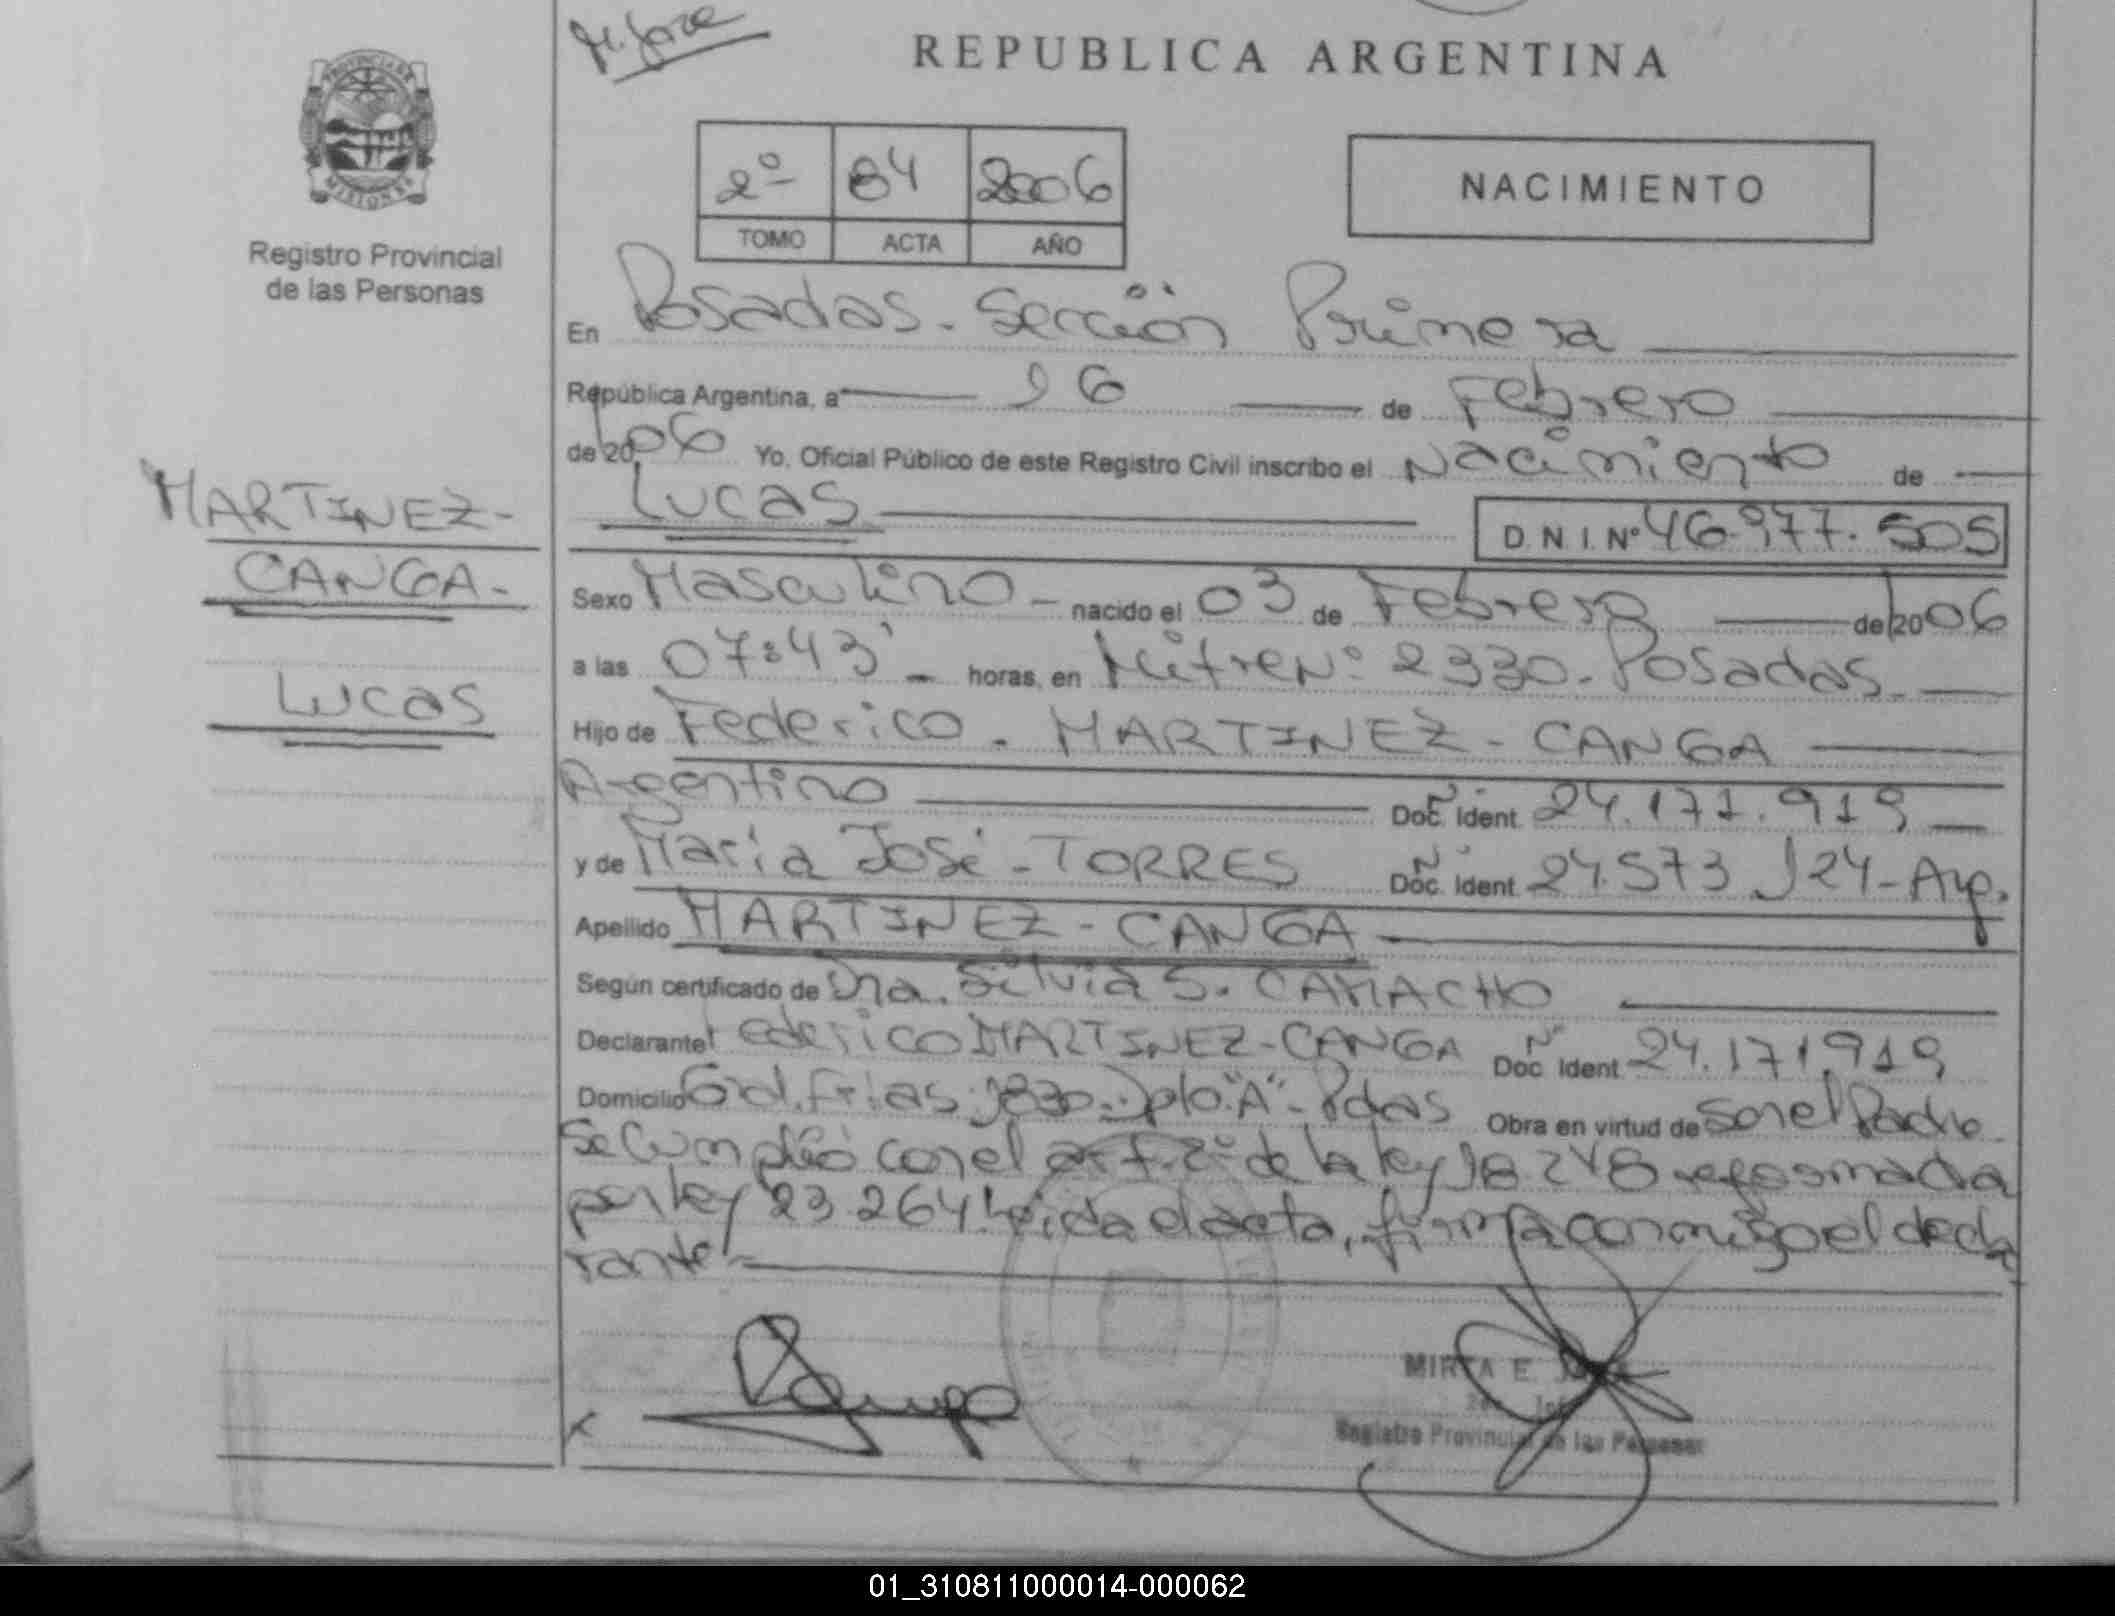 REPUBLICA ARGENTINA
2º 84 2006
TOMO ACTA AÑO
NACIMIENTO
PROVINCIA DE
MISIONES
Registro Provincial
de las Personas
En Posadas - Sección Primera
República Argentina, a 16 de Febrero
de 20 06 Yo, Oficial Público de este Registro Civil inscribo el Nacimiento de
Lucas D.N.I. Nº 46.977.505
MARTINEZ-
CANGA-
Lucas
Sexo Masculino - nacido el 03 de Febrero de 20 06
a las 07:43' - horas, en Mitre Nº 2330 - Posadas
Hijo de Federico - MARTINEZ - CANGA
Argentino Doc. Ident. 24.171.919
y de María José - TORRES Nº Doc. Ident. 24.573.124 - Arg.
Apellido MARTINEZ - CANGA
Según certificado de Dra. Silvia S. CAMACHO
Declarante Federico MARTINEZ-CANGA Nº Doc. Ident. 24.171.919
Domicilio Frías 1830 - Dpto. "A" - Pdas Obra en virtud de ser el Padre
Se cumplió con el art. 2º de la ley 18.248 reformada
por ley 23.264. Leida el acta, firma conmigo el decla
rante
MIRTA E.
Registro Provincial de las Personas
01_310811000014-000062